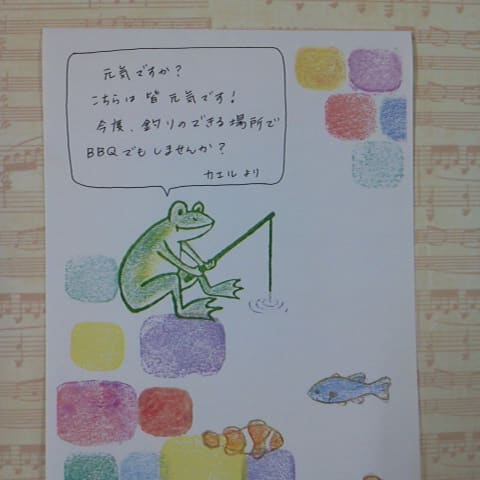 元気ですか?
こちらは皆元気です!
今度、釣りのできる場所で
BBQでもしませんか?
カエルより